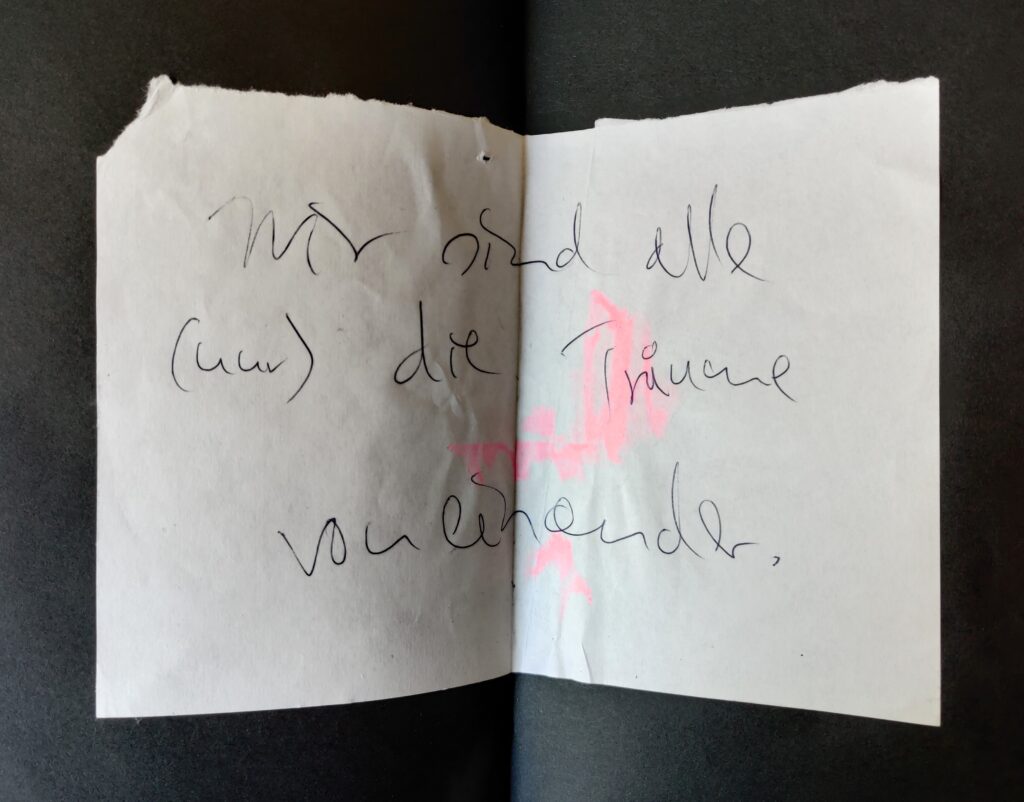 Wir sind alle
(nur) die Träume
voneinander.